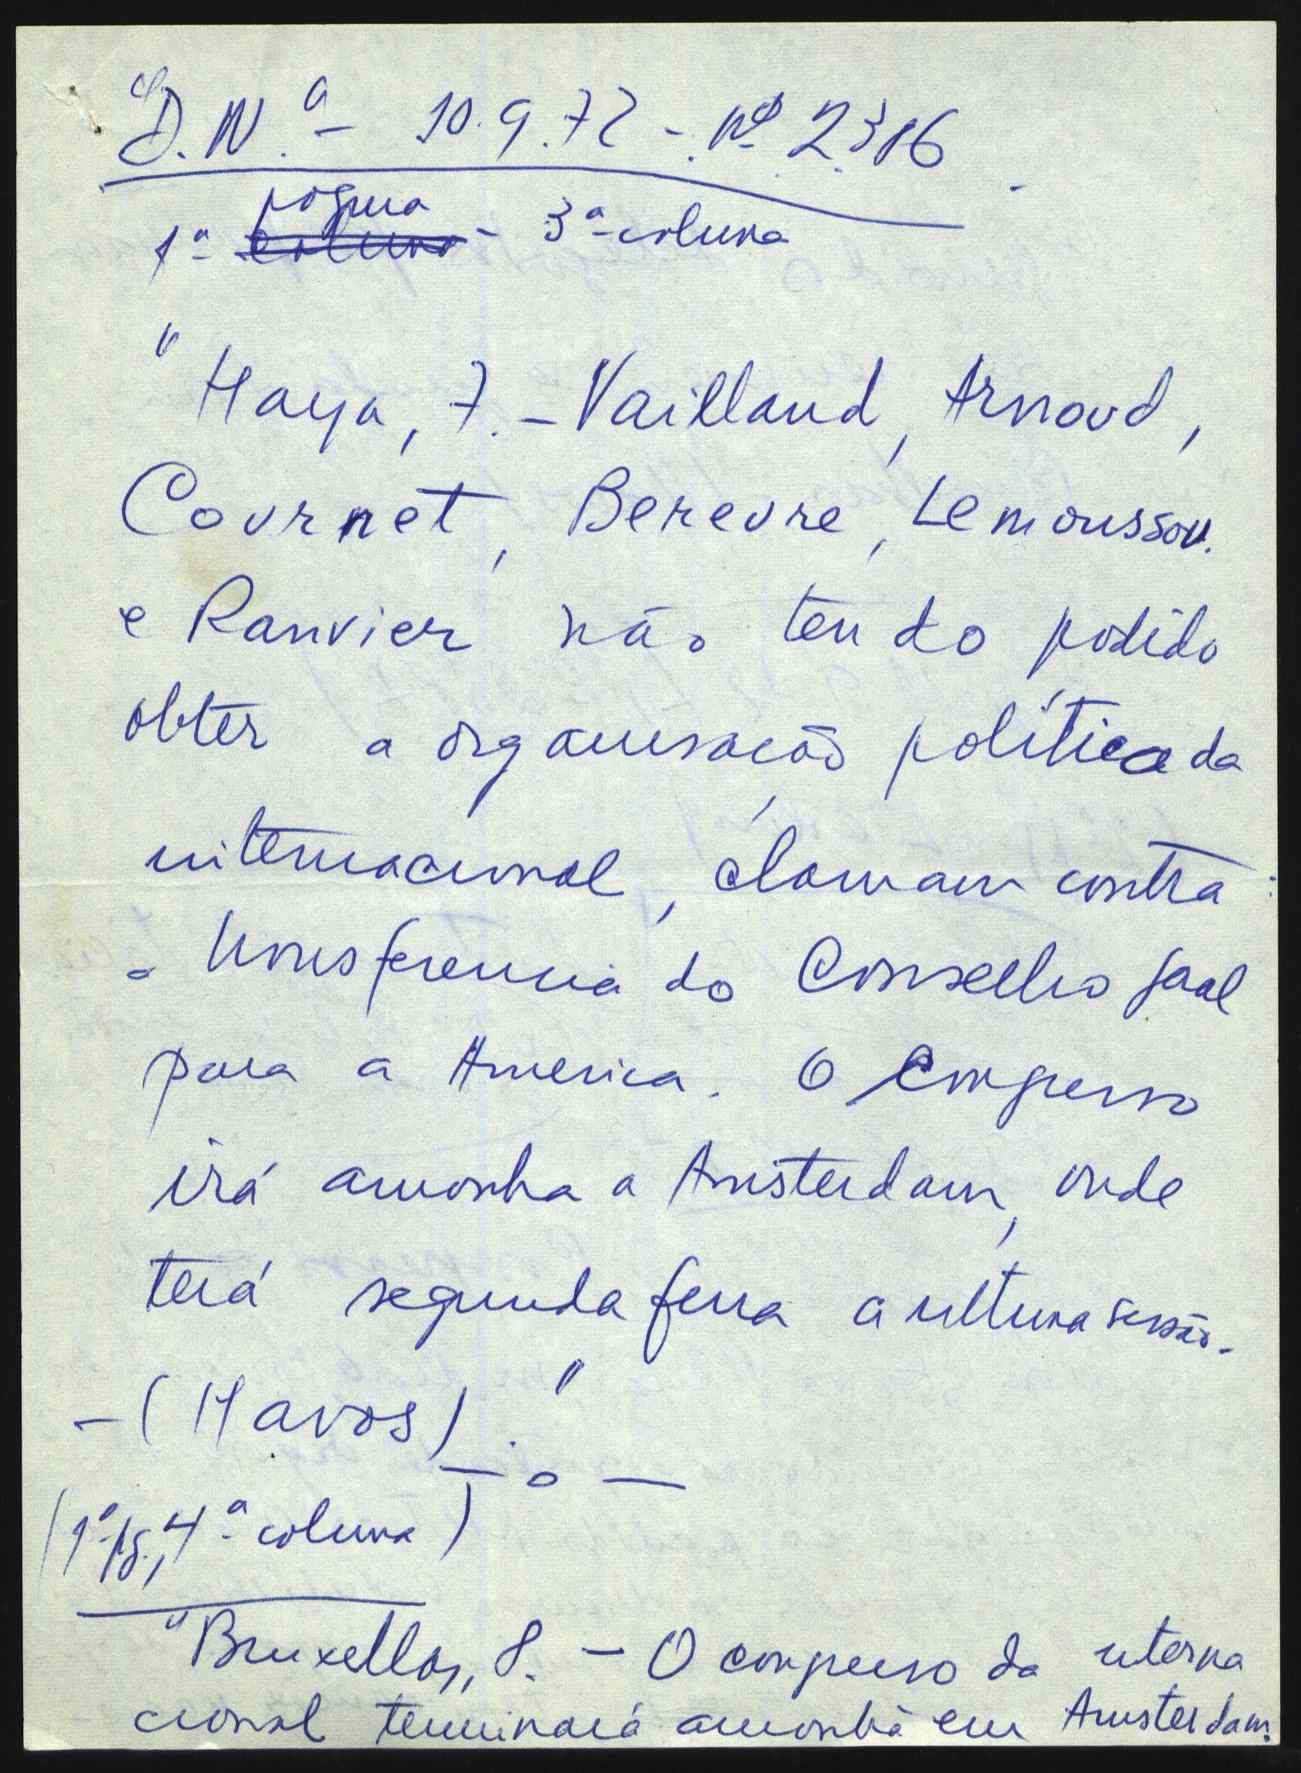 D.N. - 10.9.72 - nº 2.316
página
1ª coluna - 3ª coluna
" Haya, 7. - Vailland, Arnoud,
Cournet, Bereure, Lemousson.
e Ranvier não tendo podido
obter a organisação politica da
internacional, clamam contra
a transferencia do Conselho geral
para a America. O Congresso
irá amanha a Amsterdam, onde
terá segunda feira a ultima sessão.
- (Havas)."
— o —
(1ª pg., 4ª coluna)
"Bruxellas, 8. - O congresso da interna
cional terminará amanhã em Amsterdam.